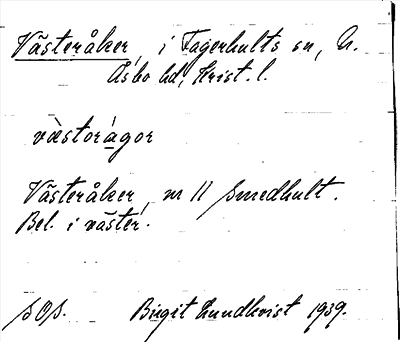 Västeråker, i Fagerhults sn, N.
Åsbo hd, Krist. l.
væ̀storágor
Västeråker, nr 11 Smedhult.
Bel. i väster.
SOS. Birgit Lundkvist 1939.